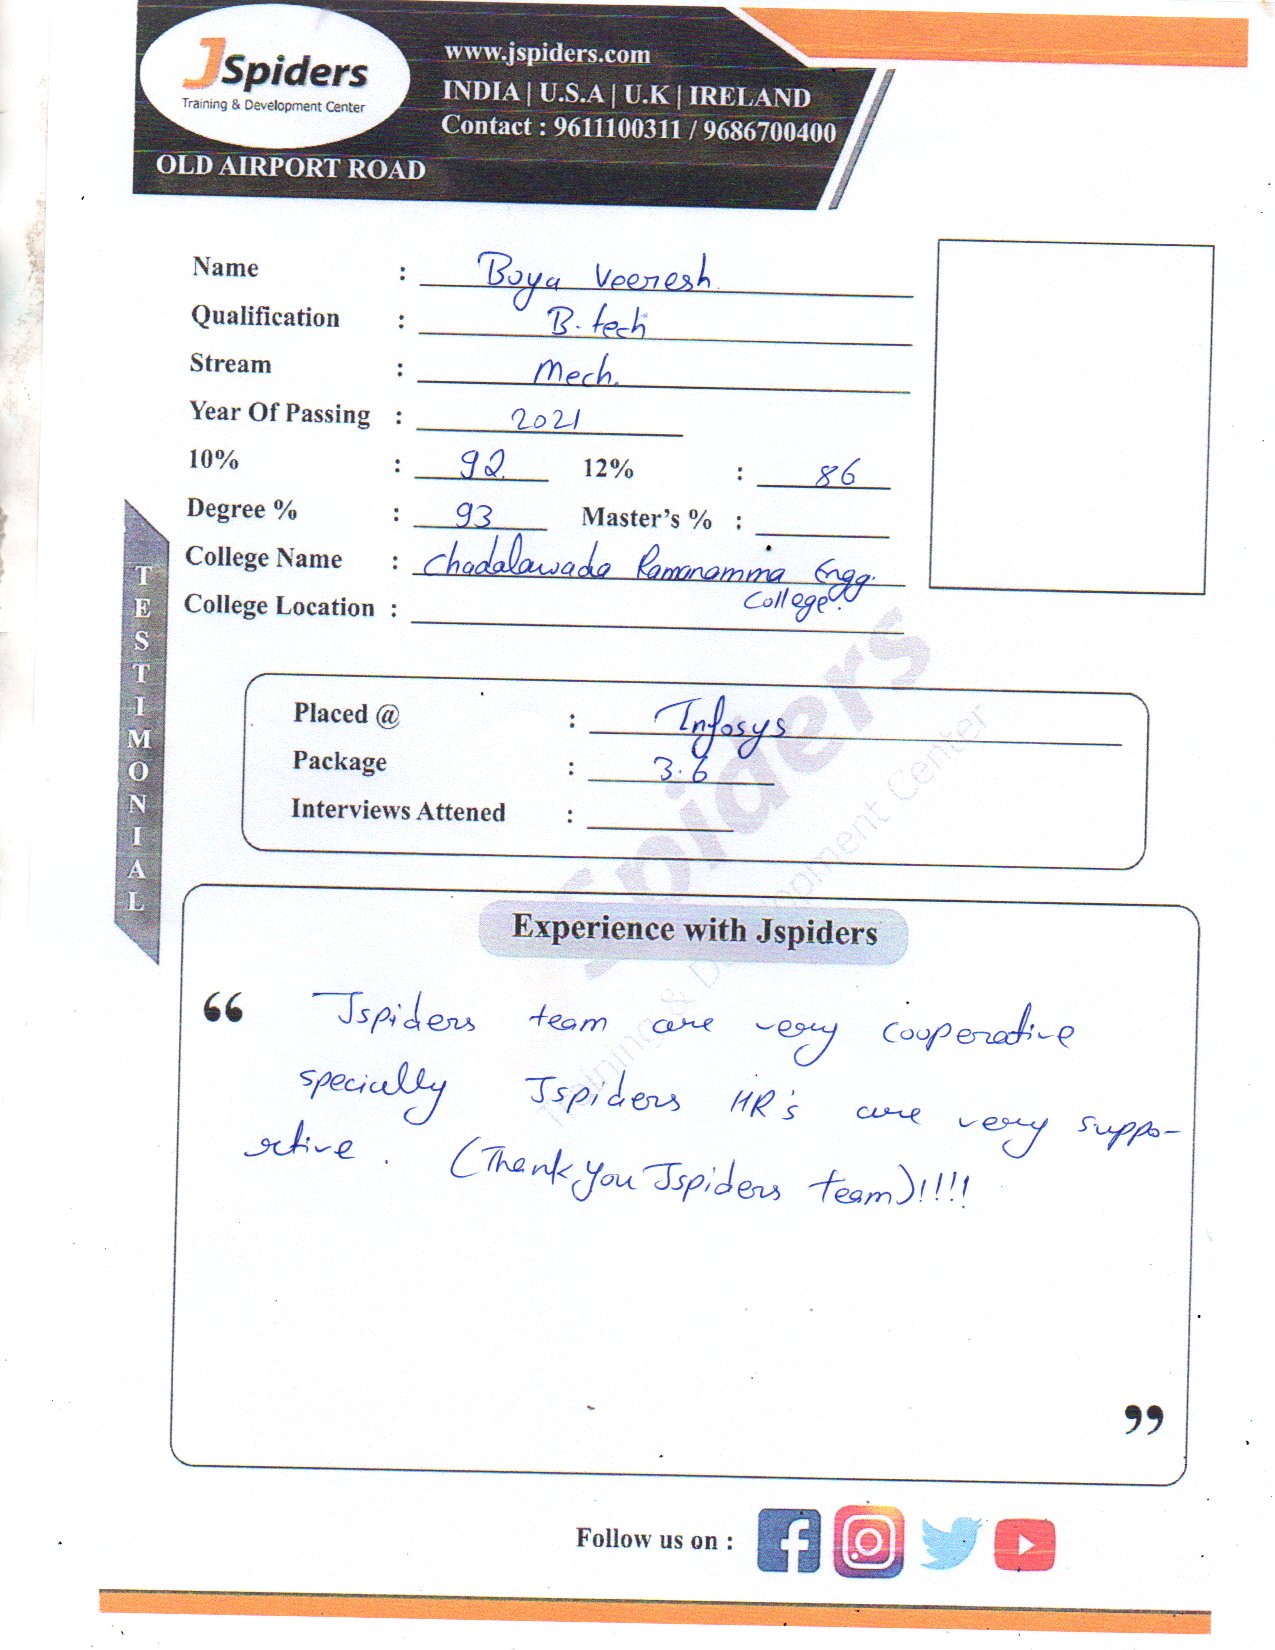 JSpiders
Training & Development Center
OLD AIRPORT ROAD
www.jspiders.com
INDIA | U.S.A | U.K | IRELAND
Contact : 9611100311 / 9686700400
Name : Boya Veeresh
Qualification : B.tech
Stream : Mech.
Year Of Passing : 2021
10% : 92 12% : 86
Degree % : 93 Master's % :
College Name : Chadalawada Ramanamma Engg.
College.
College Location :
TESTIMONIAL
Placed @ : Infosys
Package : 3.6
Interviews Attened :
Spiders
Training & Development Center
Experience with Jspiders
“ Jspiders team are very cooperative
specially Jspiders HR's are very suppo-
rtive. (Thank you Jspiders team)!!!!
”
Follow us on :